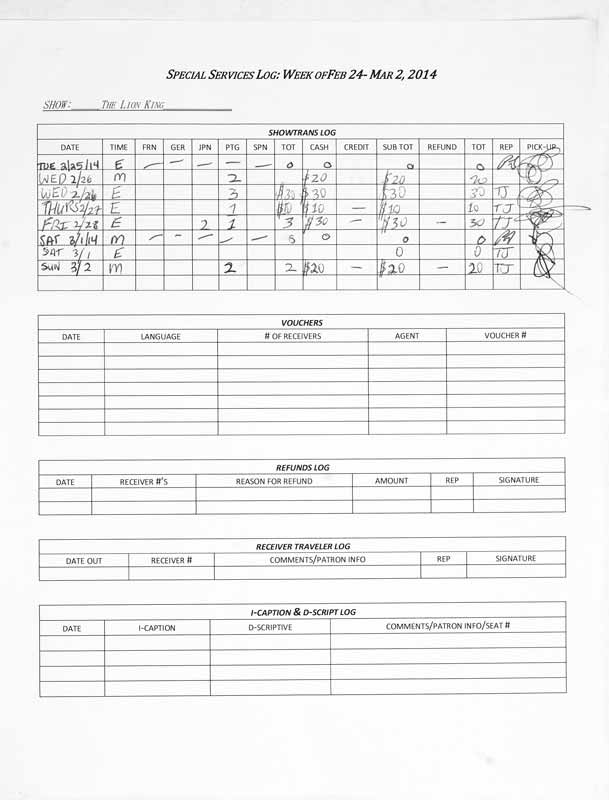 SPECIAL SERVICES LOG: WEEK OFFEB 24- MAR 2, 2014
SHOW:_____THE LION KING____________
SHOWTRANS LOG
DATE TIME FRN GER JPN PTG SPN TOT CASH CREDIT SUB TOT REFUND TOT REP PICK-UP
TUE 2/25/14 E — — — — — 0 0 0 0
WED 2/26 M 2 $20 $20 20
WED 2/26 E 3 $30 $30 $30 30 TJ
THURS 2/27 E 1 $10 $10 — $10 10 TJ
FRI 2/28 E 2 1 3 $30 — $30 — 30 TJ
SAT 3/1/14 M — — — — — 0 0 0 0
SAT 3/1 E 0 0 TJ
SUN 3/2 M 2 2 $20 — $20 — 20 TJ
VOUCHERS
DATE LANGUAGE # OF RECEIVERS AGENT VOUCHER #
REFUNDS LOG
DATE RECEIVER #'S REASON FOR REFUND AMOUNT REP SIGNATURE
RECEIVER TRAVELER LOG
DATE OUT RECEIVER # COMMENTS/PATRON INFO REP SIGNATURE
I-CAPTION & D-SCRIPT LOG
DATE I-CAPTION D-SCRIPTIVE COMMENTS/PATRON INFO/SEAT #